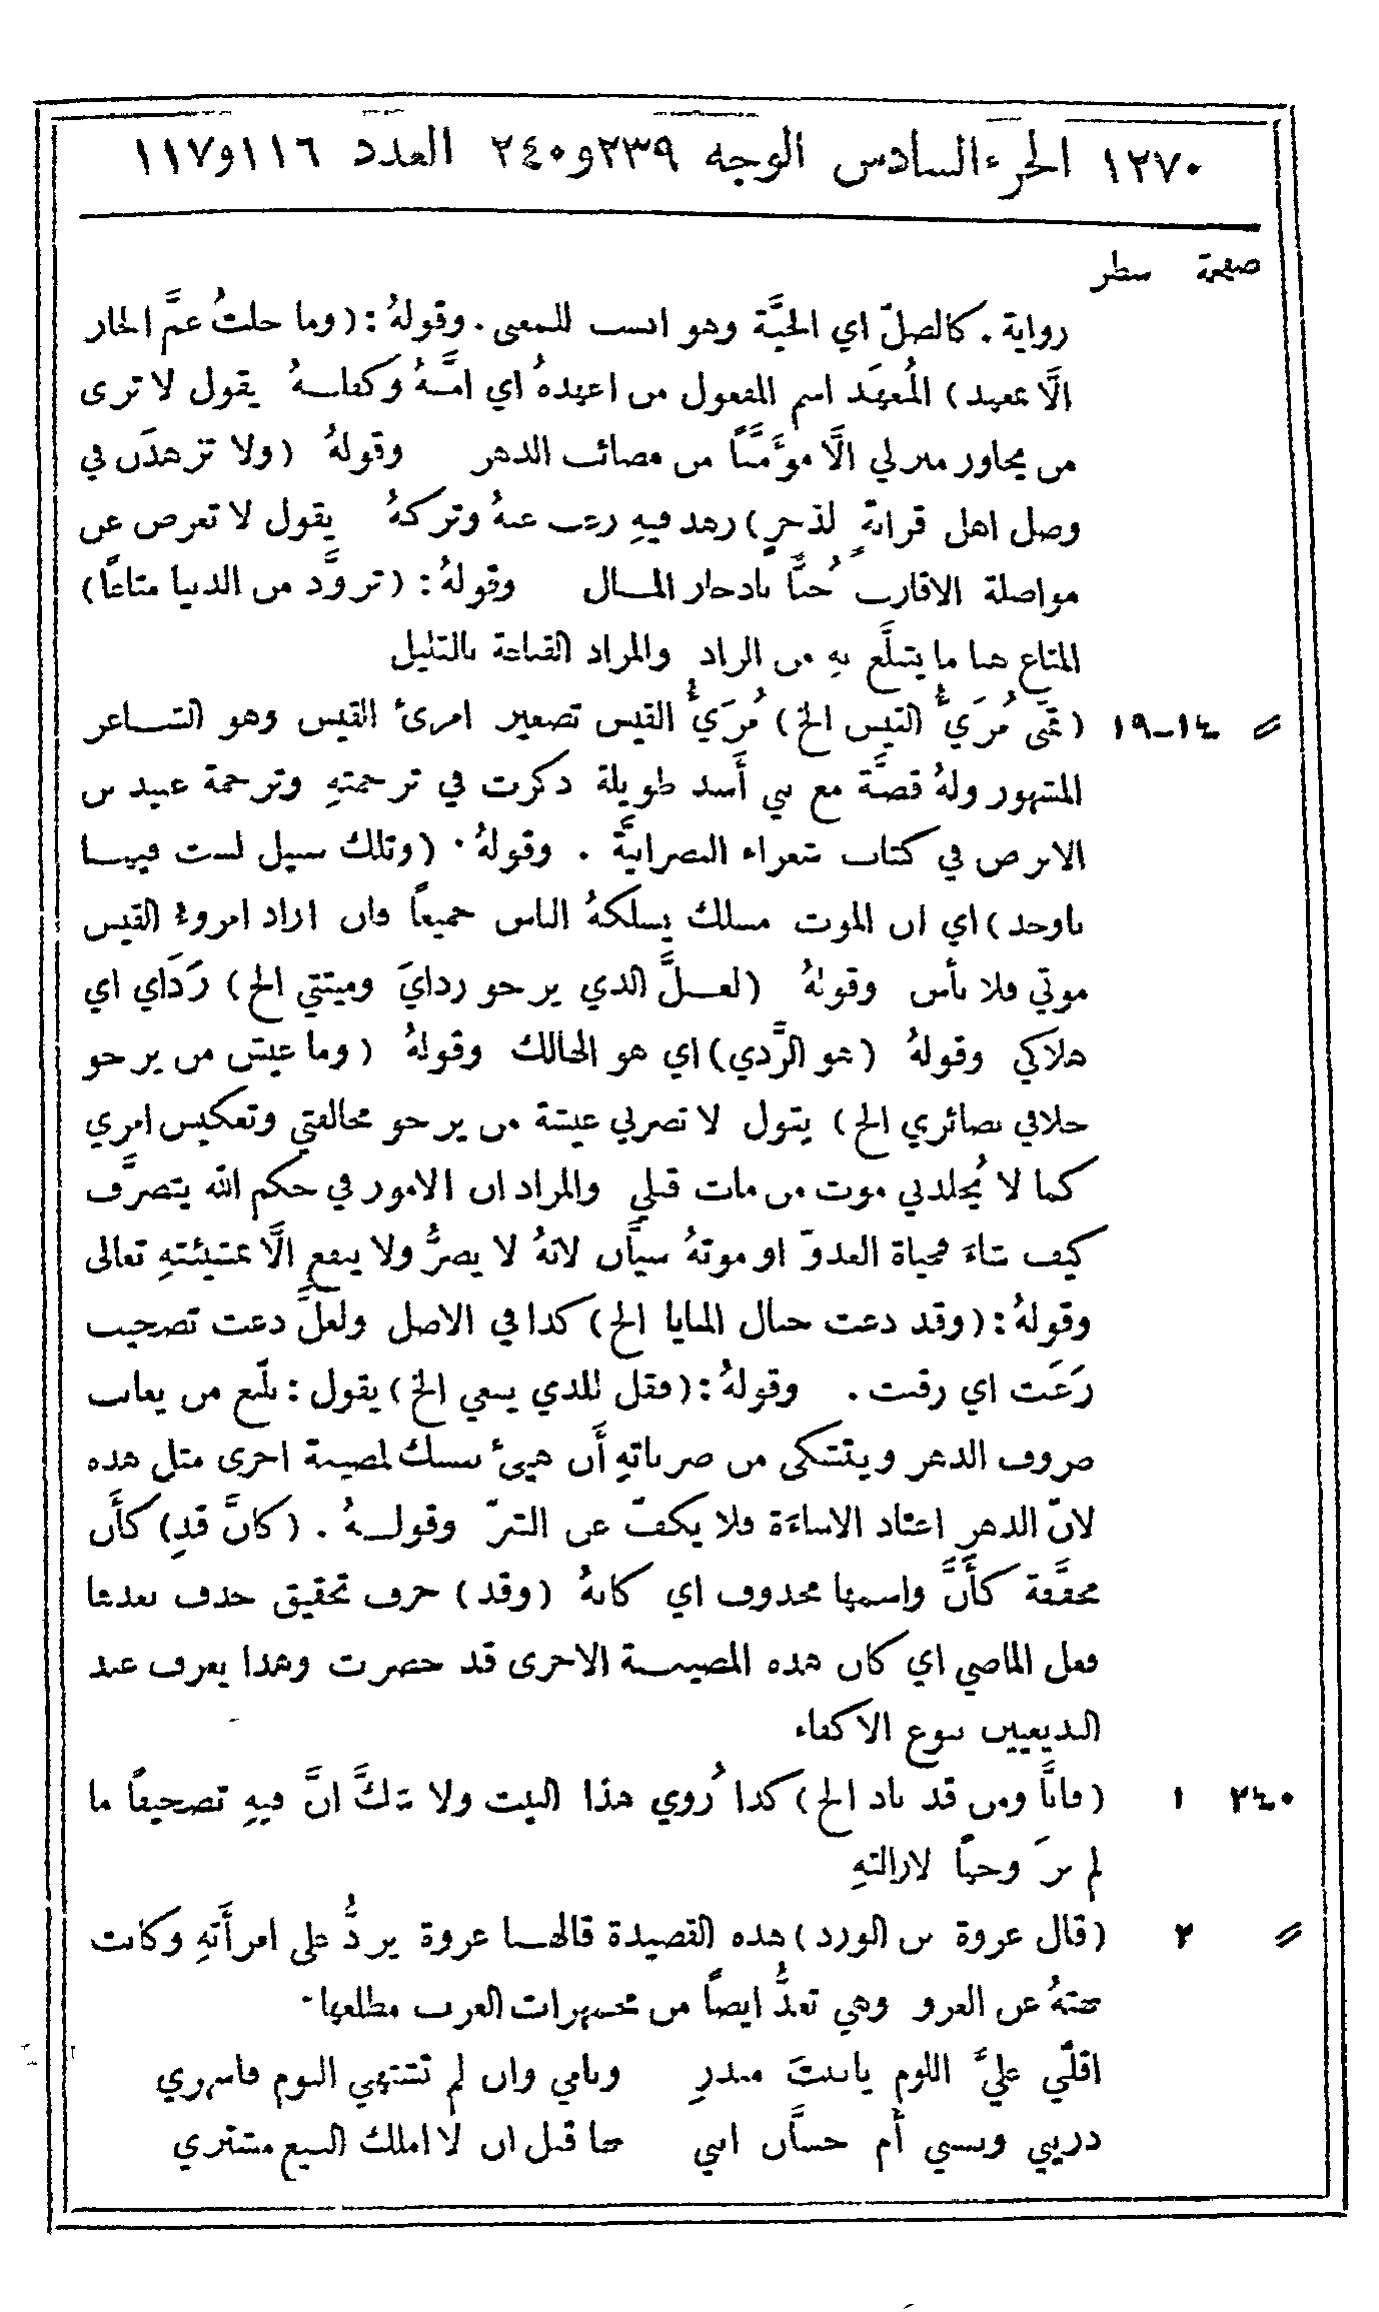 ١٢٧٠ الجزء السادس الوجه ٢٣٩ و٢٤٠ العدد ١١٦ و١١٧
صفحة سطر
رواية . كالصلّ اي الحيَّة وهو انسب للمعنى . وقولهُ : (وما حلتُ عمَّ الجار
الَّا بمعهد) المُعهَد اسم المفعول من اعهدهُ اي امَّنهُ وكفلهُ يقول لا ترى
من يجاور منزلي الَّا مؤَمَّنًا من مصائب الدهر وقولهُ (ولا تزهدَن في
وصل اهل قرابةٍ لذخرٍ) زهد فيهِ رغب عنهُ وتركهُ يقول لا تعرض عن
مواصلة الاقارب حُبًّا بادخار المـال وقولهُ : (تزوَّد من الدنيا متاعًا)
المتاع هنا ما يتبلَّع بهِ من الزاد والمراد القناعة بالقليل
〃 ١٤-١٩ (تمنَّى مُرَيءُ القيس الخ) مُرَيءُ القيس تصغير امرئ القيس وهو الشـاعر
المشهور ولهُ قصَّة مع بني أَسد طويلة ذكرت في ترجمتهِ وترجمة عبيد بن
الابرص في كتاب شعراء النصرانيَّة . وقولهُ . (وتلك سبيل لست فيهـا
باوحد) اي ان الموت مسلك يسلكهُ الناس جميعاً فان اراد امروء القيس
موتي فلا بأس وقولهُ (لعـلَّ الذي يرجو ردايَ وميتتي الخ) رَدَاي اي
هلاكي وقولهُ (هو الرَّدي) اي هو الهالك وقولهُ (وما عيش من يرجو
خلافي بضائري الخ) يقول لا تضرني عيشة من يرجو مخالفتي وتعكيس امري
كما لا يُخلدني موت من مات قبلي والمراد ان الامور في حكم الله يتصرَّف
كيف شاءَ فحياة العدوّ او موتهُ سيَّان لانهُ لا يضرُّ ولا ينفع الَّا بمشيئتهِ تعالى
وقولهُ : (وقد دعت حبال المنايا الخ) كذا في الاصل ولعلَّ دعت تصحيف
رَعَت اي رقت . وقولهُ : (فقل للذي يبغي الخ) يقول : بلّغ من يعاتب
صروف الدهر ويتشكى من ضرباتهِ أَن هيئ نفسك لمصيبة اخرى مثل هذه
لانّ الدهر اعتاد الاساءَة فلا يكفّ عن الشرّ وقولـهُ . (كانَّ قدِ) كأَن
مخفَّفة كأَنَّ واسمها محذوف اي كانهُ (وقد) حرف تحقيق حذف بعدها
فعل الماضي اي كان هذه المصيبـة الاخرى قد حضرت وهذا يعرف عند
البديعيين بنوع الاكفاء
٢٤٠ ١ (فانَّا ومن قد باد الخ) كذا رُوي هذا البيت ولا شكَّ انَّ فيهِ تصحيفًا ما
لم نرَ وجهًا لازالتهِ
〃 ٢ (قال عروة بن الورد) هذه القصيدة قالهـا عروة يردُّ على امرأَتهِ وكانت
نهتهُ عن الغزو وهي تعدُّ ايضاً من مجمهرات العرب مطلعها .
اقلّي عليَّ اللوم يا ابنتَ منذرِ ونامي وان لم تشتهي النوم فاسهري
ذريني ونفسي أُم حسَّان انني بها قبل ان لا املك البيع مشتري